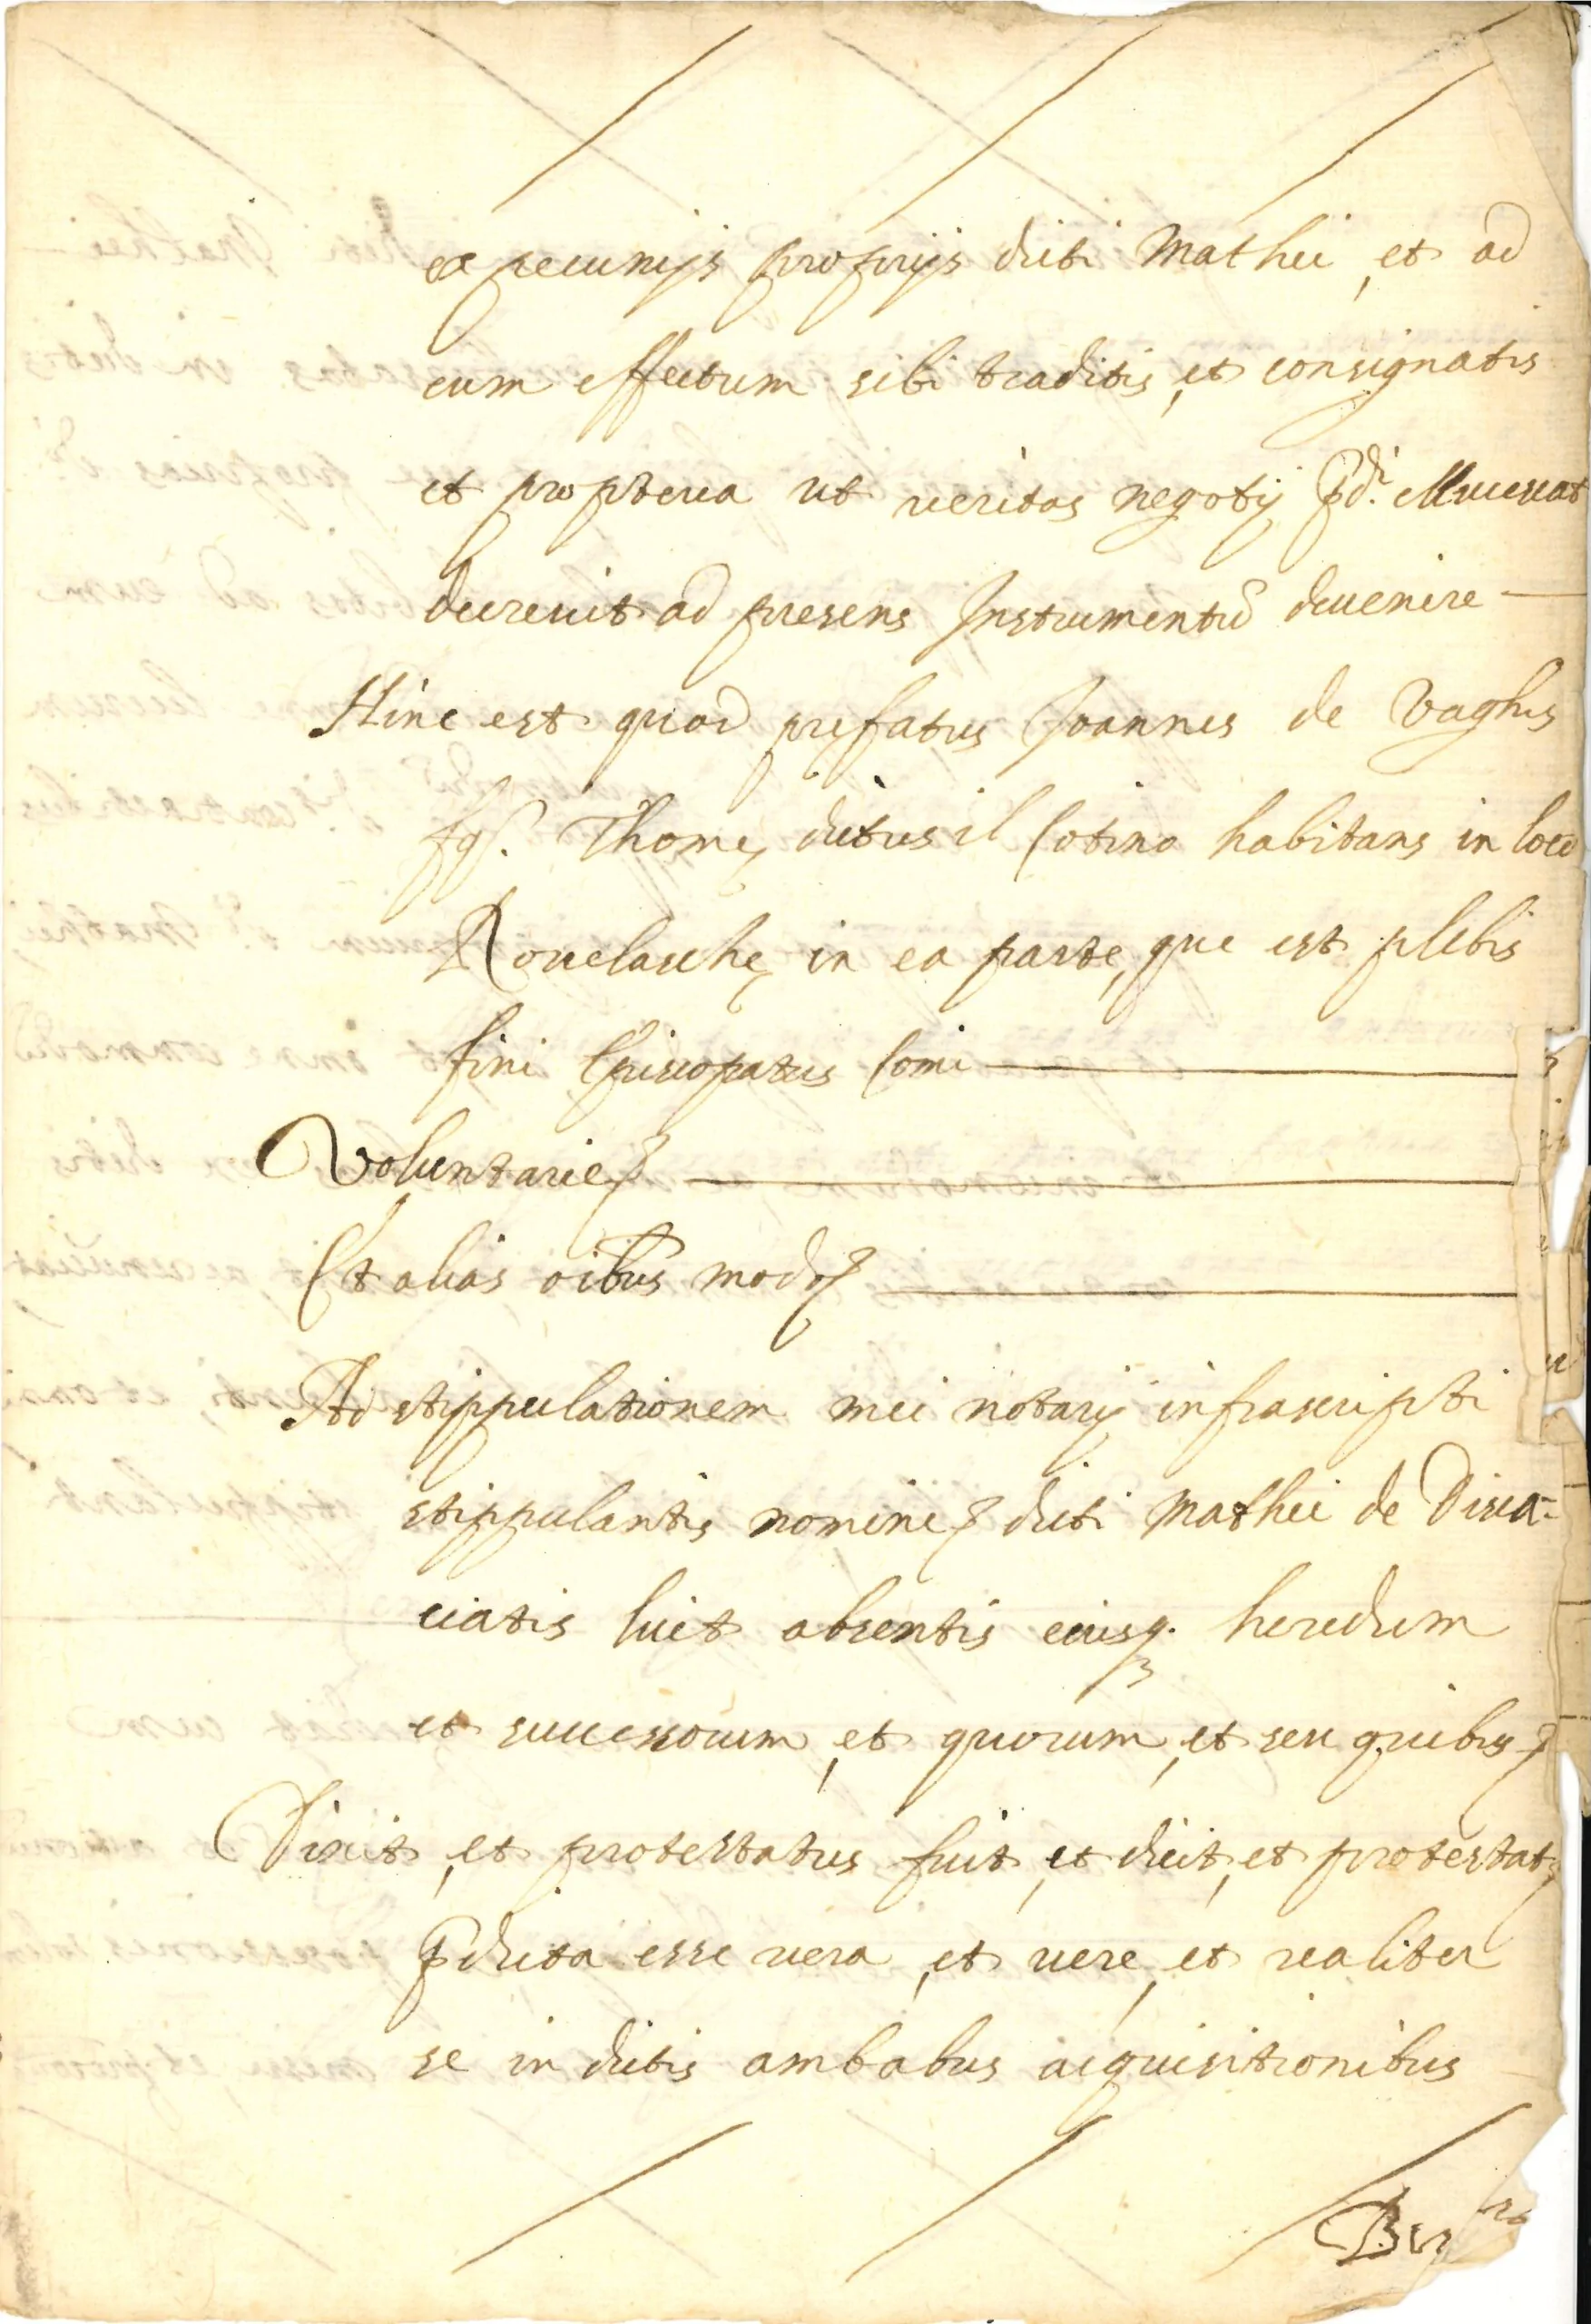 ex pecunijs proprijs dicti Mathei, et ad
eum effectum sibi traditis, et consignatis
et propterea ut veritas negotij pd.i elluceat
decrevit ad presens Instrumentū devenire
Hinc est quod prefatus Joannes de Vaghis
fq. Thomę dictus il Cotino habitans in loco
Rovelaschę in ea parte, que est plebis
fini Episcopatus Comi
Voluntarie
Et alias oibus mod
Ad stippulationem mei notarij infrascripti
stippulantis nomine dicti Mathei de Disca=
ciatis licet absentis eiusq. heredum
et successorum, et quorum, et seu quibus
Dixit, et protestatus fuit, et dicit, et protestat
pdicta esse vera, et vere, et realiter
se in dictis ambabus acquisitionibus